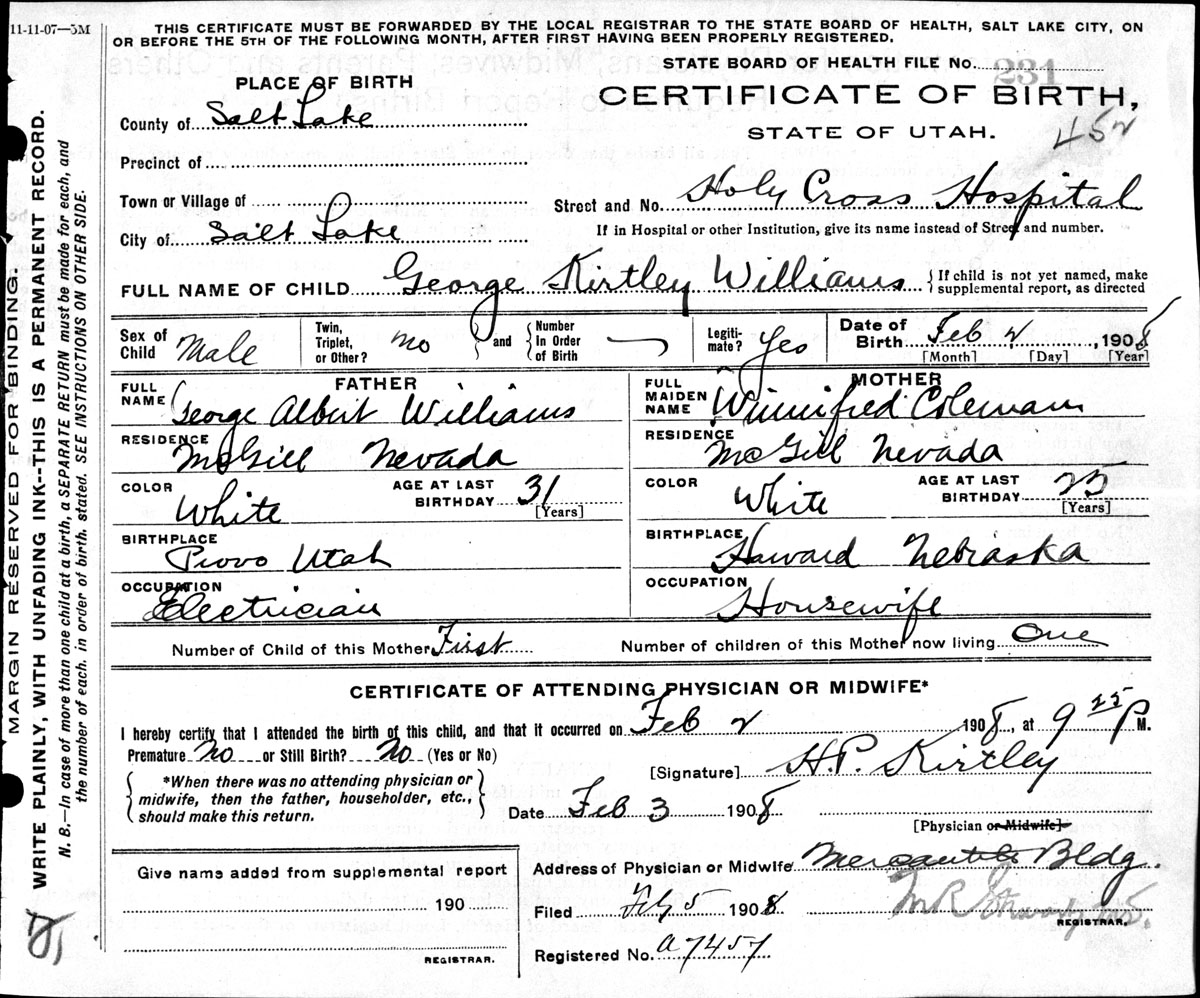 11-11-07—5M
THIS CERTIFICATE MUST BE FORWARDED BY THE LOCAL REGISTRAR TO THE STATE BOARD OF HEALTH, SALT LAKE CITY, ON
OR BEFORE THE 5TH OF THE FOLLOWING MONTH, AFTER FIRST HAVING BEEN PROPERLY REGISTERED.
STATE BOARD OF HEALTH FILE No. 231
PLACE OF BIRTH
CERTIFICATE OF BIRTH,
STATE OF UTAH.
452
County of Salt Lake
Precinct of
Town or Village of
Street and No. Holy Cross Hospital
City of Salt Lake
If in Hospital or other Institution, give its name instead of Street and number.
FULL NAME OF CHILD George Kirtley Williams { If child is not yet named, make
supplemental report, as directed
Sex of Child Male
Twin, Triplet, or Other? no
and { Number In Order of Birth
Legitimate? Yes
Date of Birth Feb 2, 1908
[Month] [Day] [Year]
FATHER
FULL NAME George Albert Williams
RESIDENCE McGill Nevada
COLOR White
AGE AT LAST BIRTHDAY 31
[Years]
BIRTHPLACE Provo Utah
OCCUPATION Electrician
MOTHER
FULL MAIDEN NAME Winnifred Coleman
RESIDENCE McGill Nevada
COLOR White
AGE AT LAST BIRTHDAY 25
[Years]
BIRTHPLACE Haward Nebraska
OCCUPATION Housewife
Number of Child of this Mother First
Number of children of this Mother now living One
CERTIFICATE OF ATTENDING PHYSICIAN OR MIDWIFE*
I hereby certify that I attended the birth of this child, and that it occurred on Feb 2 1908, at 9 25 P M.
Premature No or Still Birth? No (Yes or No)
{ *When there was no attending physician or
midwife, then the father, householder, etc.,
should make this return. }
[Signature] H.P. Kirtley
Date Feb 3 1908
[Physician or Midwife]
Give name added from supplemental report
190
REGISTRAR.
Address of Physician or Midwife Mercantile Bldg.
Filed Feb 5 1908
M R
REGISTRAR.
Registered No. a7457
MARGIN RESERVED FOR BINDING.
WRITE PLAINLY, WITH UNFADING INK--THIS IS A PERMANENT RECORD.
N. B.—In case of more than one child at a birth, a SEPARATE RETURN must be made for each, and
the number of each, in order of birth, stated. SEE INSTRUCTIONS ON OTHER SIDE.